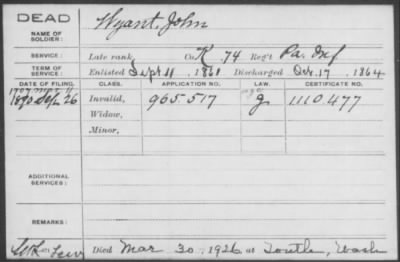 DEAD
NAME OF SOLDIER: Wyant, John
SERVICE: Late rank, Co. K, 74 Reg't Pa. Inf
TERM OF SERVICE: Enlisted Sept 11, 1861 Discharged Oct. 17, 1864
DATE OF FILING. CLASS. APPLICATION NO. LAW. CERTIFICATE NO.
1890 Sep 26 Invalid, 965.517 g 1110.477
Widow,
Minor,
ADDITIONAL SERVICES:
REMARKS:
Died Mar 30, 1926 at Wash